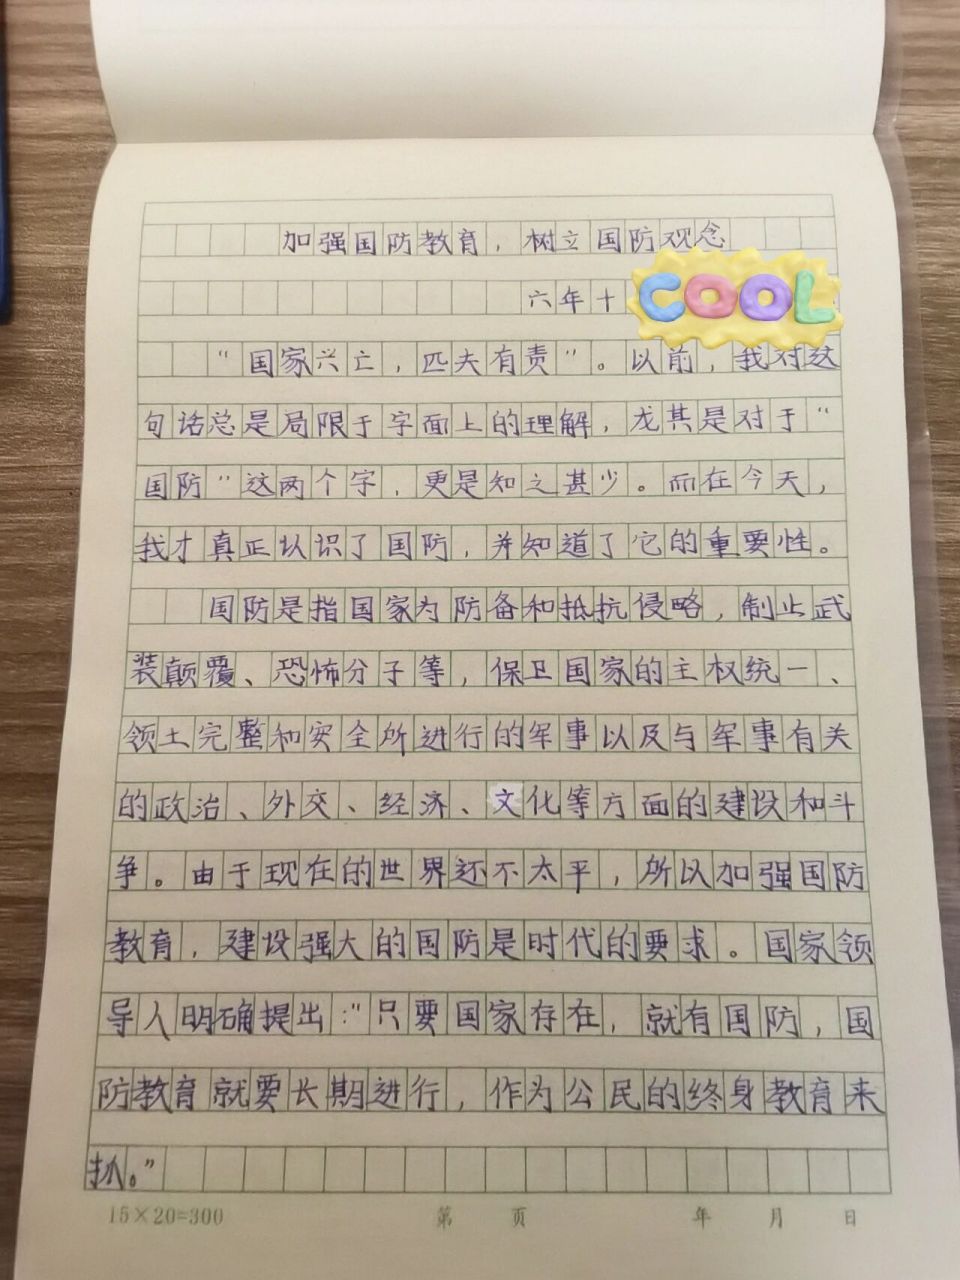 加强国防教育，树立国防观念
六年十
COOL
“国家兴亡，匹夫有责”。以前，我对这
句话总是局限于字面上的理解，尤其是对于“
国防”这两个字，更是知之甚少。而在今天，
我才真正认识了国防，并知道了它的重要性。
国防是指国家为防备和抵抗侵略，制止武
装颠覆、恐怖分子等，保卫国家的主权统一、
领土完整和安全所进行的军事以及与军事有关
的政治、外交、经济、文化等方面的建设和斗
争。由于现在的世界还不太平，所以加强国防
教育，建设强大的国防是时代的要求。国家领
导人明确提出：“只要国家存在，就有国防，国
防教育就要长期进行，作为公民的终身教育来
抓。”
15×20=300 第 页 年 月 日